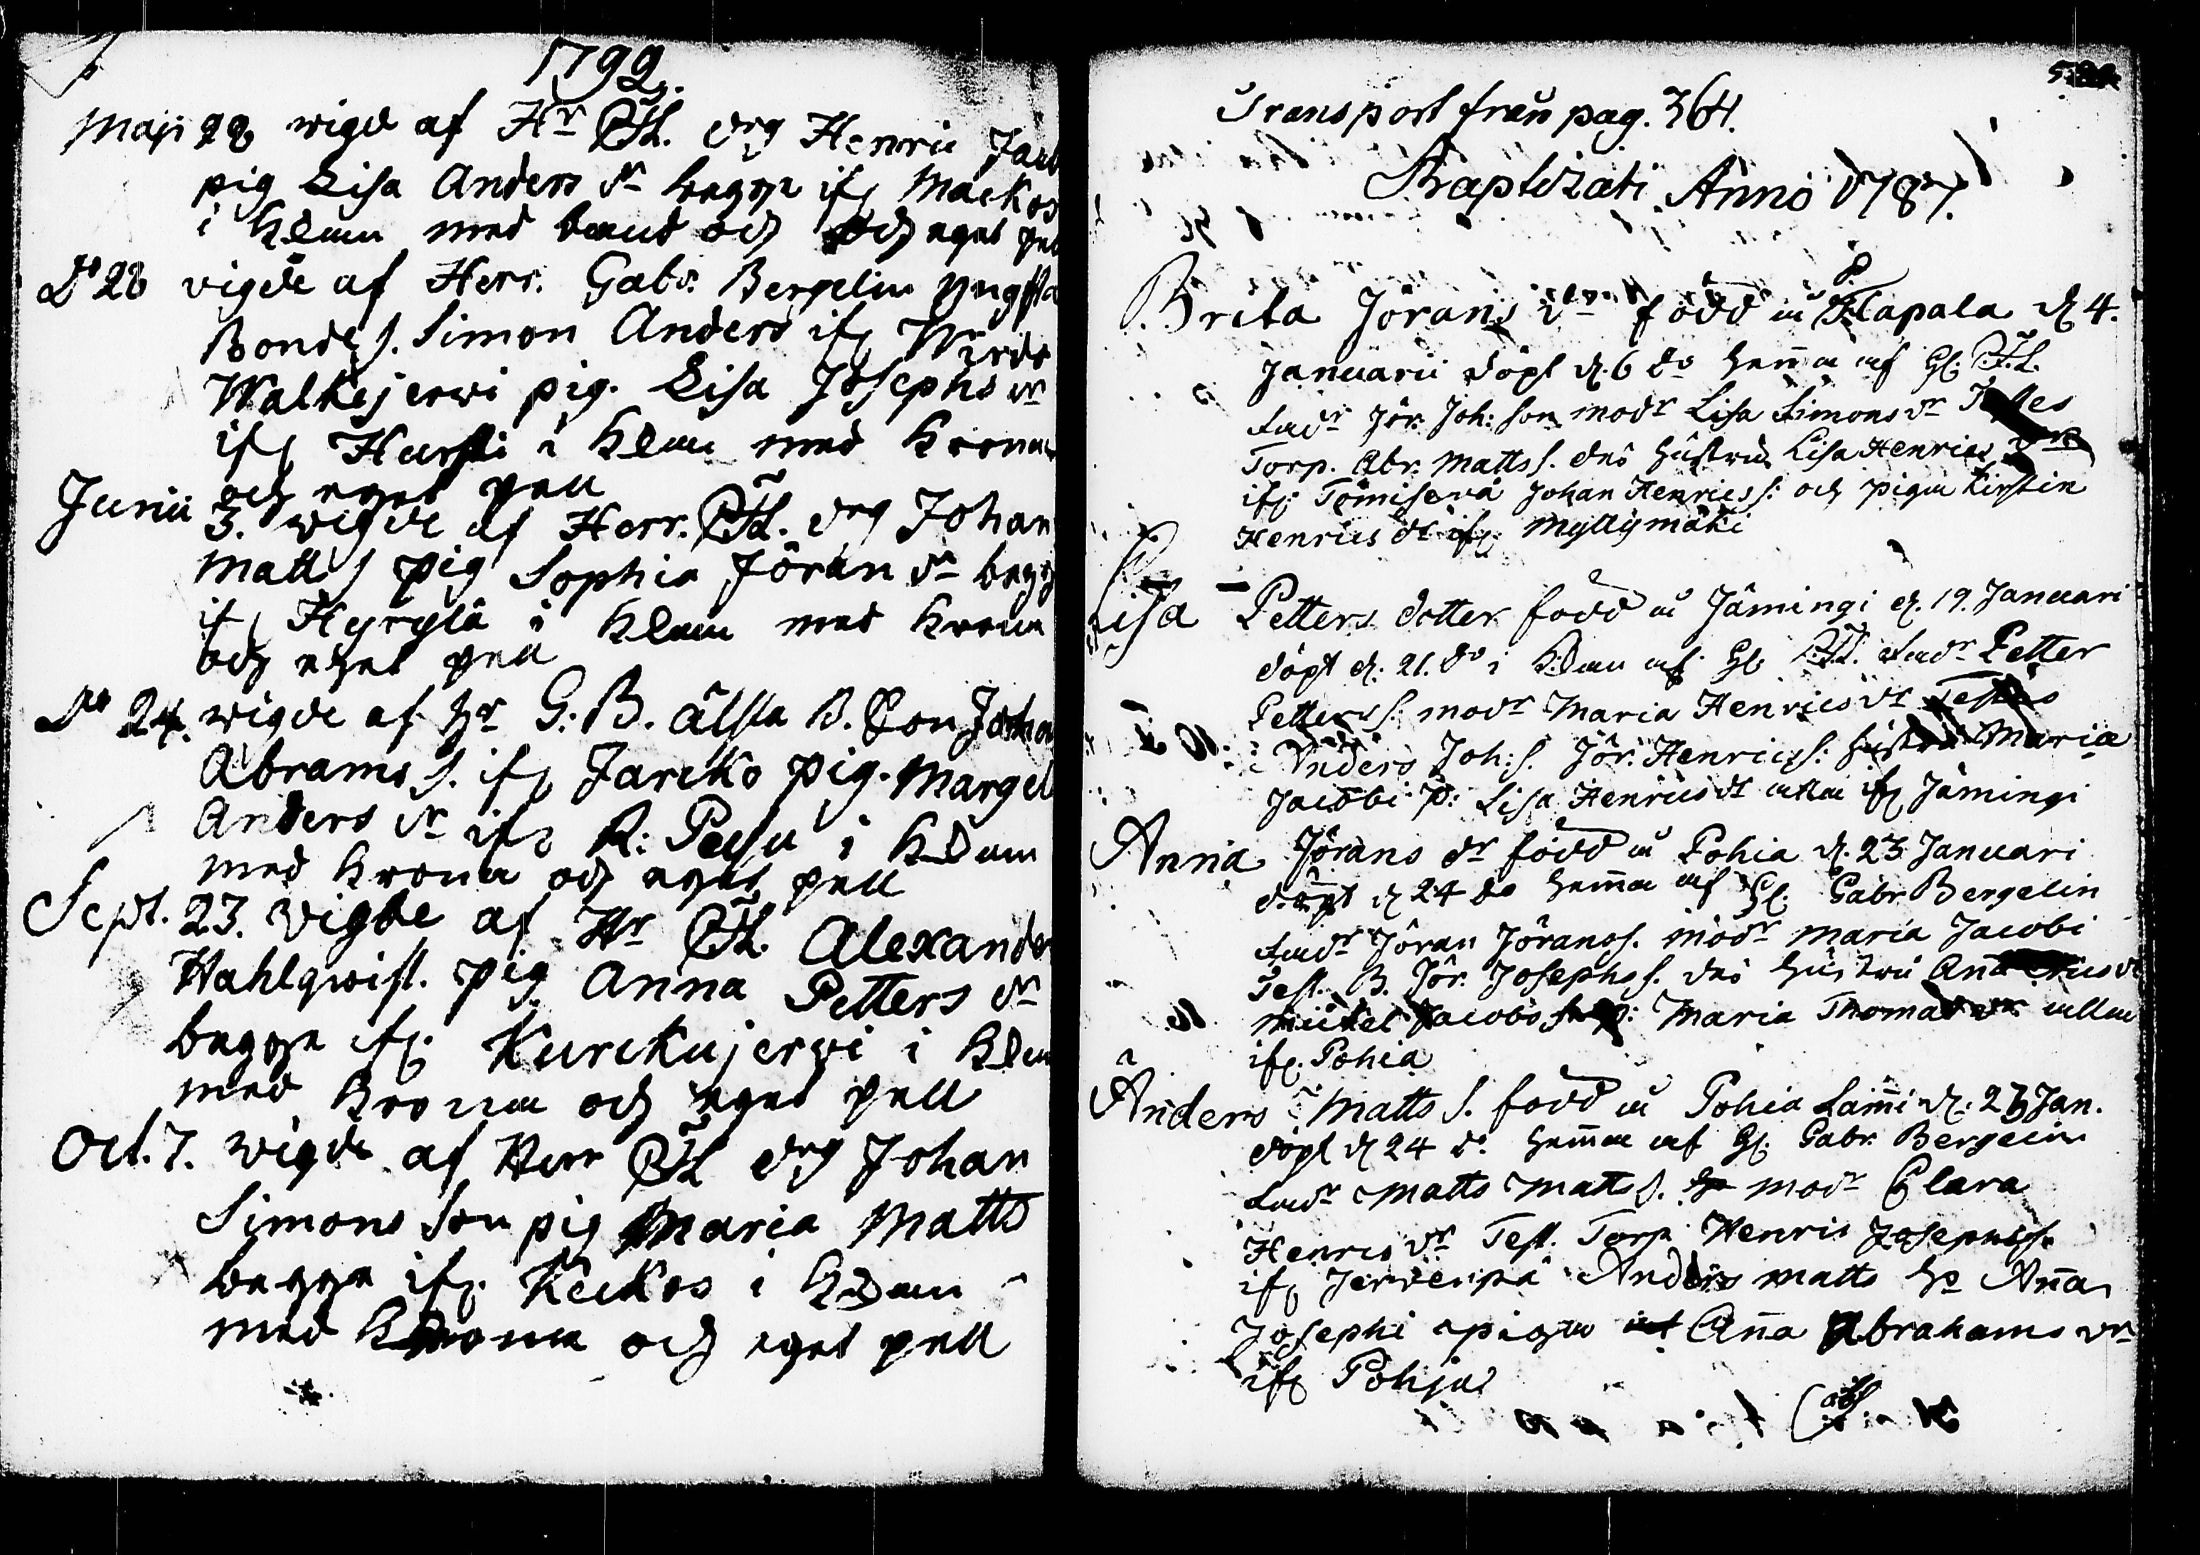 1792.
Maji 28 wigde af Hr PH. drg Henric Jac
pig Lisa Anders dr begge ifr Mackos
i Kläm med band och eget pell
do 28 vigde af Herr. Gabr. Bergelin yngsta
Bonde s. Simon Anders ifr
Walkejerwi pig. Lisa Josephs dr
ifr Hursti i Kläm med Krona
och eget pell
Junii 3. wigde af Herr. PH. drg Johan
Matts s pig Sophia Jöran dr begge
ifr Hyrylä i Kläm med Krona
och eget pell
do 24. wigde af Hr G: B. älsta B. Son Joha
Abrams s. ifr Jarcko pig. Marget
Anders dr ifr R: Pelsu i Kläm
med Krona och eget pell
Sept. 23. vigde af Hr PH. Alexander
Wahlqwist. pig Anna Petters dr
begge ifr. Kurckujerwi i Kläm
med Krona och eget pell
Oct. 7. wigde af Herr PH drg Johan
Simons Son pig Maria Matts
begge ifr. Keckos i Kläm
med Krona och eget pell
Transport från pag. 364.
Baptizati Anno 1787.
Brita Jörans dr född i Hapala d. 4.
Januarii döpt d. 6 do hemma af H. P.H.
Fadr Jör. Joh: son modr Lisa Simons dr Testes
Torp. Abr. Matts s. des hustru Lisa Henrics
ifr. Tömisevä Johan Henrics s: och pigan Kirstin
Henrics dr ifr. Myllymäki
Lisa Petters dotter född i Jämingi d. 19. Januari
döpt d: 21. do i Kläm af H. P.H. Fadr Petter
Petters s: modr Maria Henrics dr Testes
Anders Joh: s. Jör. Henrics s: hustru Maria
Jacobi P: Lisa Henrics dr alla ifr Jämingi
Anna Jörans dr född i Pohia d. 23 Januari
döpt d 24 do hemma af H. Gabr Bergelin
Fadr Jöran Jörans s. modr Maria Jacobi
Test. B. Jör. Josephs s. des hustru
Michel Jacobs s P: Maria Thomas dr alla
ifr. Pohia
Anders Matts s. född i Pohia Lami d: 23 Jan.
döpt d 24 do hemma af H. Gabr. Bergelin
Fadr Matts Matts s. modr Clara
Henrics dr Test. Torp Henric Josephs s.
ifr Jerwenpä Anders Matts Ho Aña
Josephi pigan Aña Abrahams dr
ifr Pohja